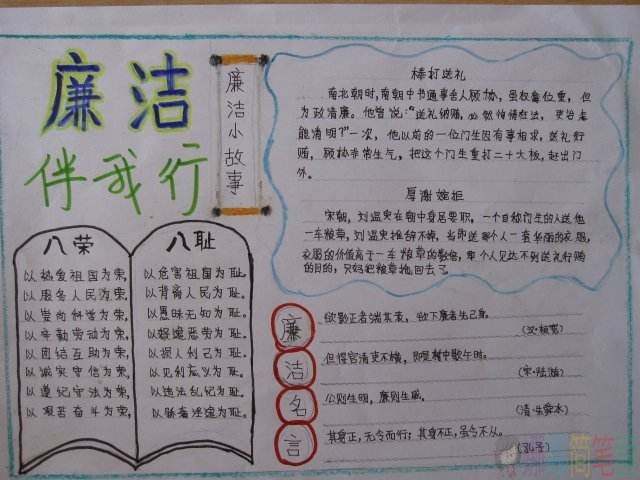 廉洁
伴我行
廉洁小故事
棒打送礼
南北朝时,南朝中书通事舍人顾协,虽权重位重,但
为政清廉。他曾说:"送礼纳贿,必做枉法,
能清明?"一次,他以前的一位门生因有事相求,送礼行
贿,顾协非常生气,把这个门生重打二十大板,赶出门
外。
厚谢婉拒
宋朝,刘温叟在朝中身居要职,一个自称门生的人送他
一车粮草,刘温叟推辞不掉,当即送那个人一套华丽的衣服,
衣服的价值高于一车粮草的数倍,那个人见达不到送礼行贿
的目的,只好把粮草拖回去了。
八荣
以热爱祖国为荣,
以服务人民为荣,
以崇尚科学为荣,
以辛勤劳动为荣,
以团结互助为荣,
以诚实守信为荣,
以遵纪守法为荣,
以艰苦奋斗为荣,
八耻
以危害祖国为耻。
以背离人民为耻。
以愚昧无知为耻。
以好逸恶劳为耻。
以损人利己为耻。
以见利忘义为耻。
以违法乱纪为耻。
以骄奢淫逸为耻。
廉洁名言
欲影正者端其表,欲下廉者先己身。
(汉·桓宽)
但得官清吏不横,即是村中歌午时。
(宋·陆游)
公则生明,廉则生威。
(清·朱舜水)
其身正,无令而行;其身不正,虽令不从。
(孔子)
简笔画